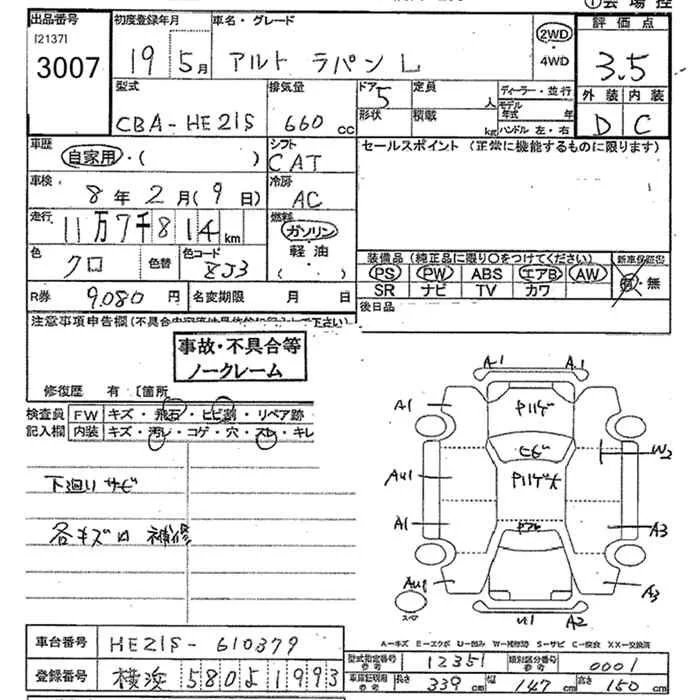 ①会場控
出品番号 初度登録年月 車名・グレード 2WD 評価点
[21371]
3007 19 5月 アルト ラパン L ・4WD 3.5
型式 排気量 ドア 5 定員 人 ディーラー・並行 外装 内装
CBA-HE21S 660 cc 形状 積載 kg モデル年式 年 ハンドル 左・右 D C
車歴 自家用・( ) シフト CAT セールスポイント (正常に機能するものに限ります)
車検 8年2月(9日) 冷房 AC
走行 11万7千814km 燃料 ガソリン 軽油 ( ・ )
色 クロ 色替 色コード ZJ3 装備品 (純正品に限り○をつけてください) 新車保証書
PS PW ABS エアB AW 有・無
SR ナビ TV カワ
R券 9,080円 名変期限 月 日 後日品
注意事項申告欄
事故・不具合等
ノークレーム
修復歴 有 [箇所
検査員 FW キズ・飛石・ヒビ割・リペア跡
記入欄 内装 キズ・汚レ・コゲ・穴・スレ・キレ
下廻りサビ
各キズ凹 補修
A1 A1
A1 P11ゲ
ヒビ W2
AU1 P11ゲ大
A1 A3
AU1 A3
スペア U1 A2
車台番号 HE21S-610379
A-キズ E-エクボ U-凹み W-補修跡 S-サビ C-腐食 XX-交換済
登録番号 横浜 580よ1993
型式指定番号 参考 12351 類別区分番号 参考 0001
車庫証明用 参考 長さ 339cm 幅 147cm 高さ 150cm